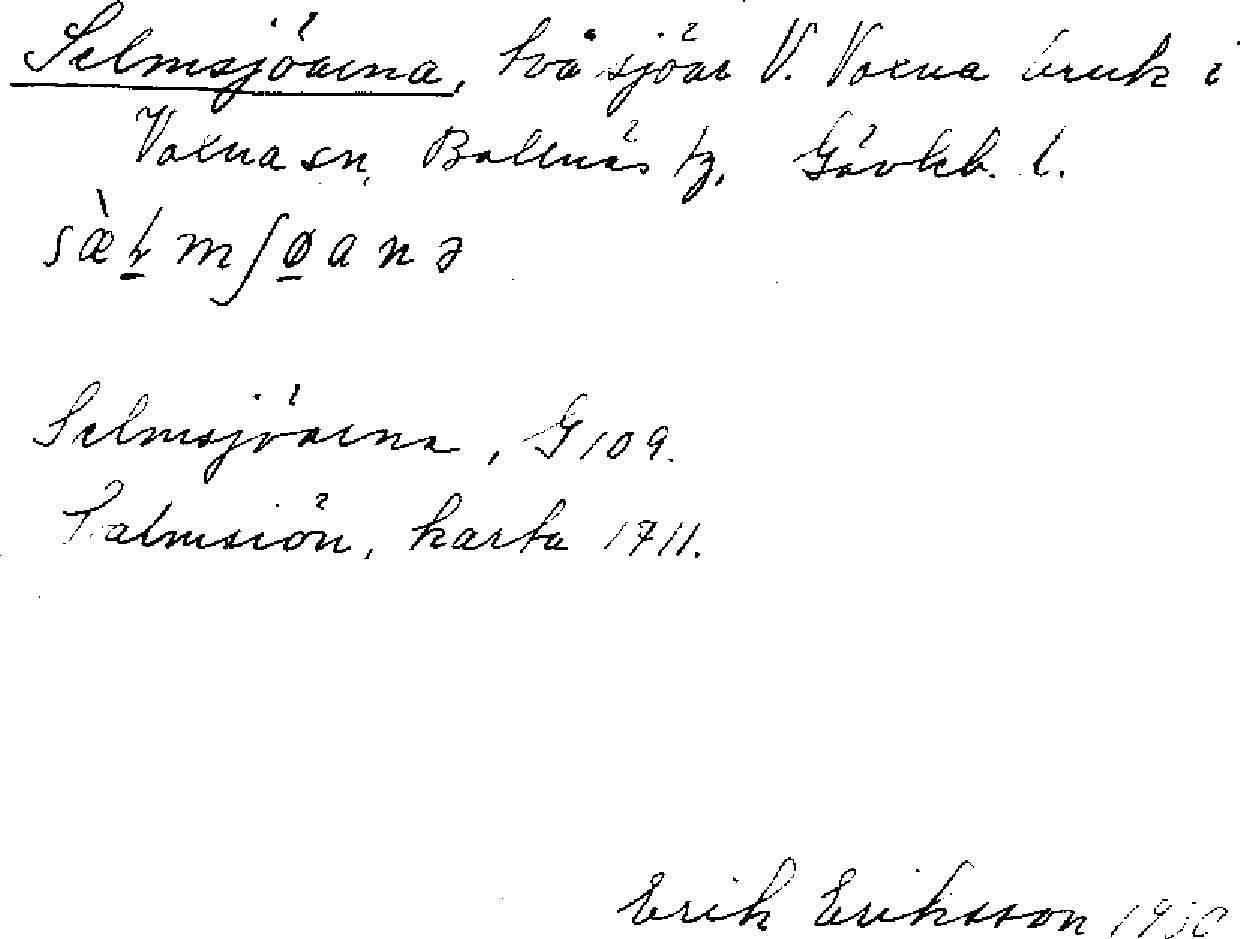 Selmsjöarna, två sjöar V. Voxna bruk i
Voxna sn, Bollnäs tg, Gävleb. l.
Selmsjöarna, G 109.
Salmsiön, karta 1711.
Erik Eriksson 1930